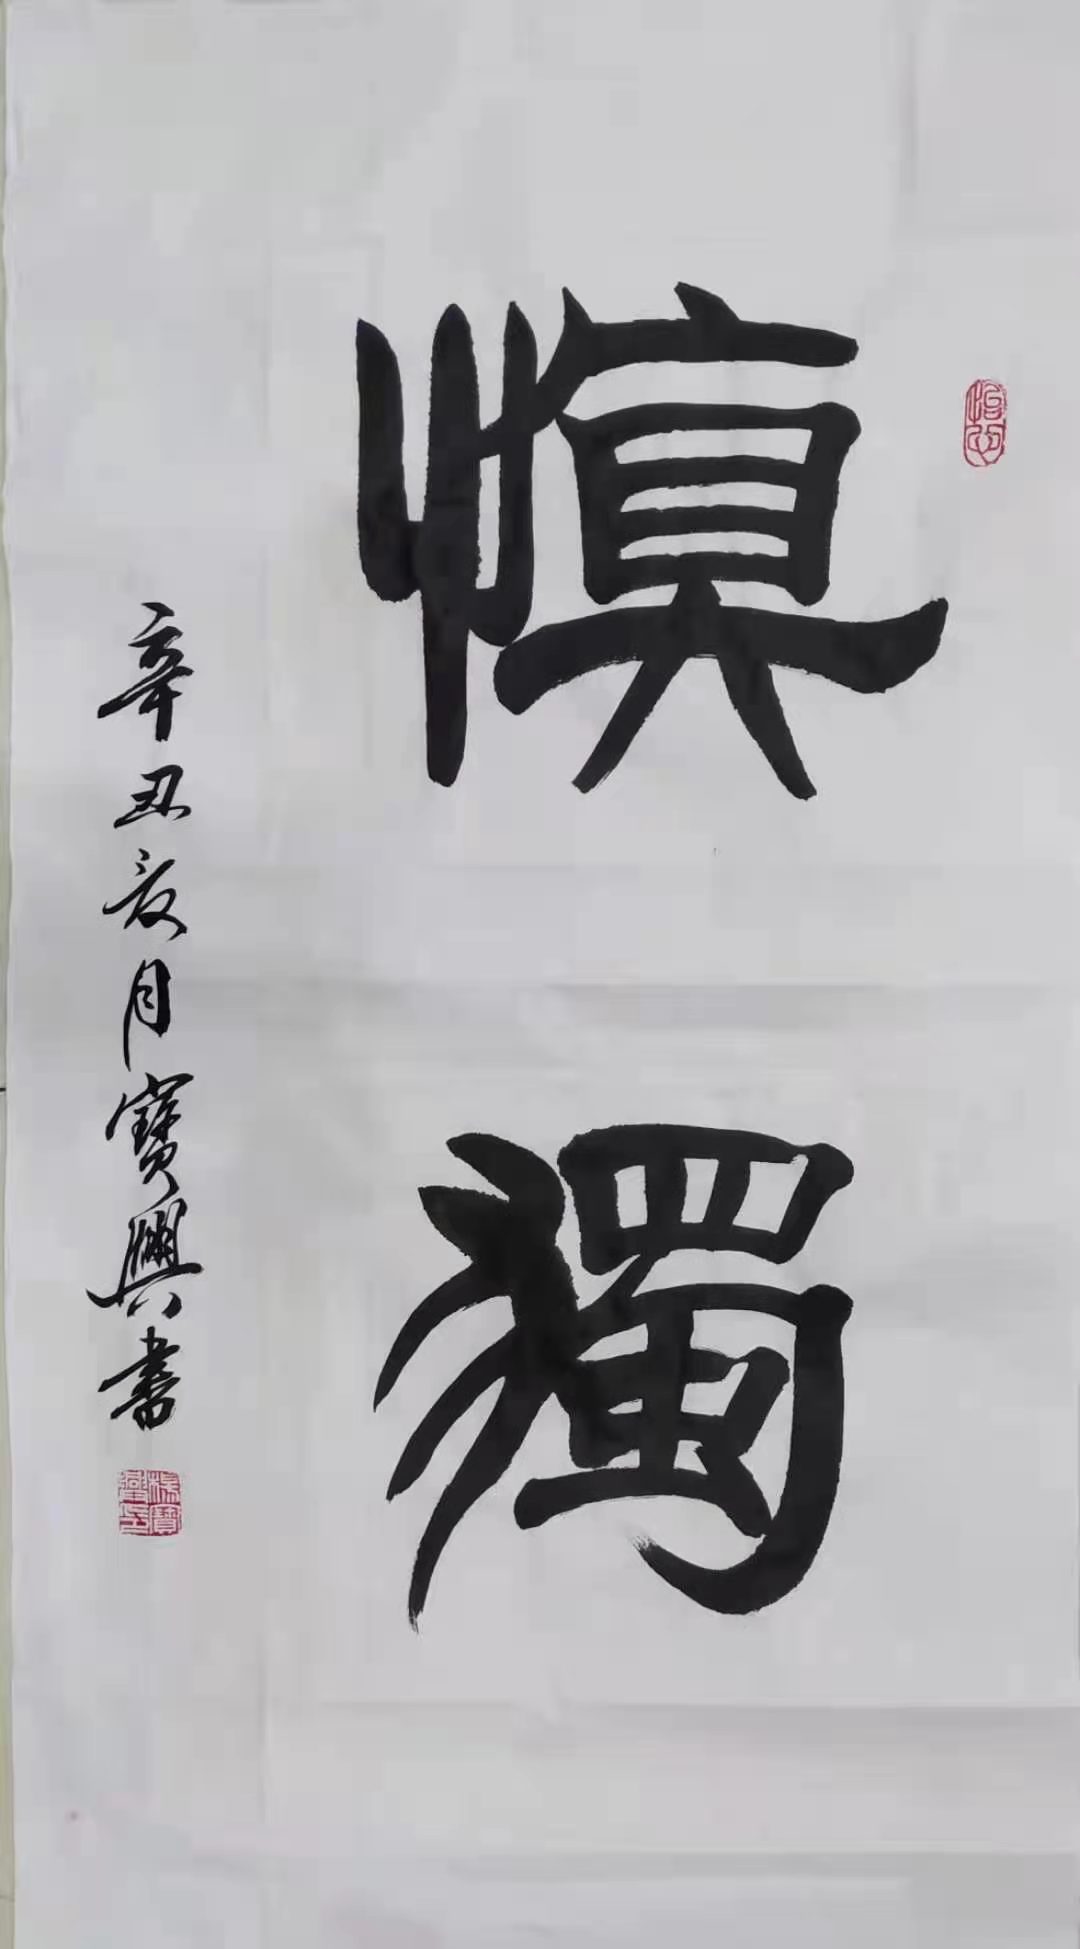 慎獨
辛丑亥月寶興書